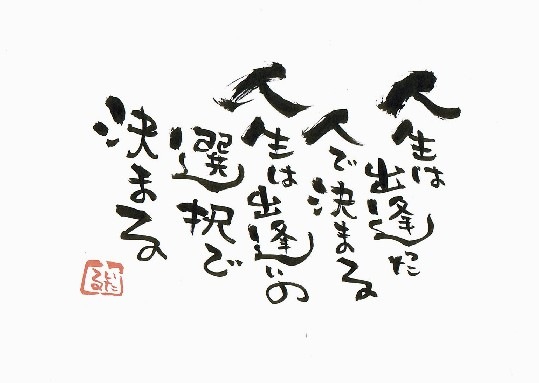 人生は出逢った
人で決まる
人生は出逢いの
選択で
決まる